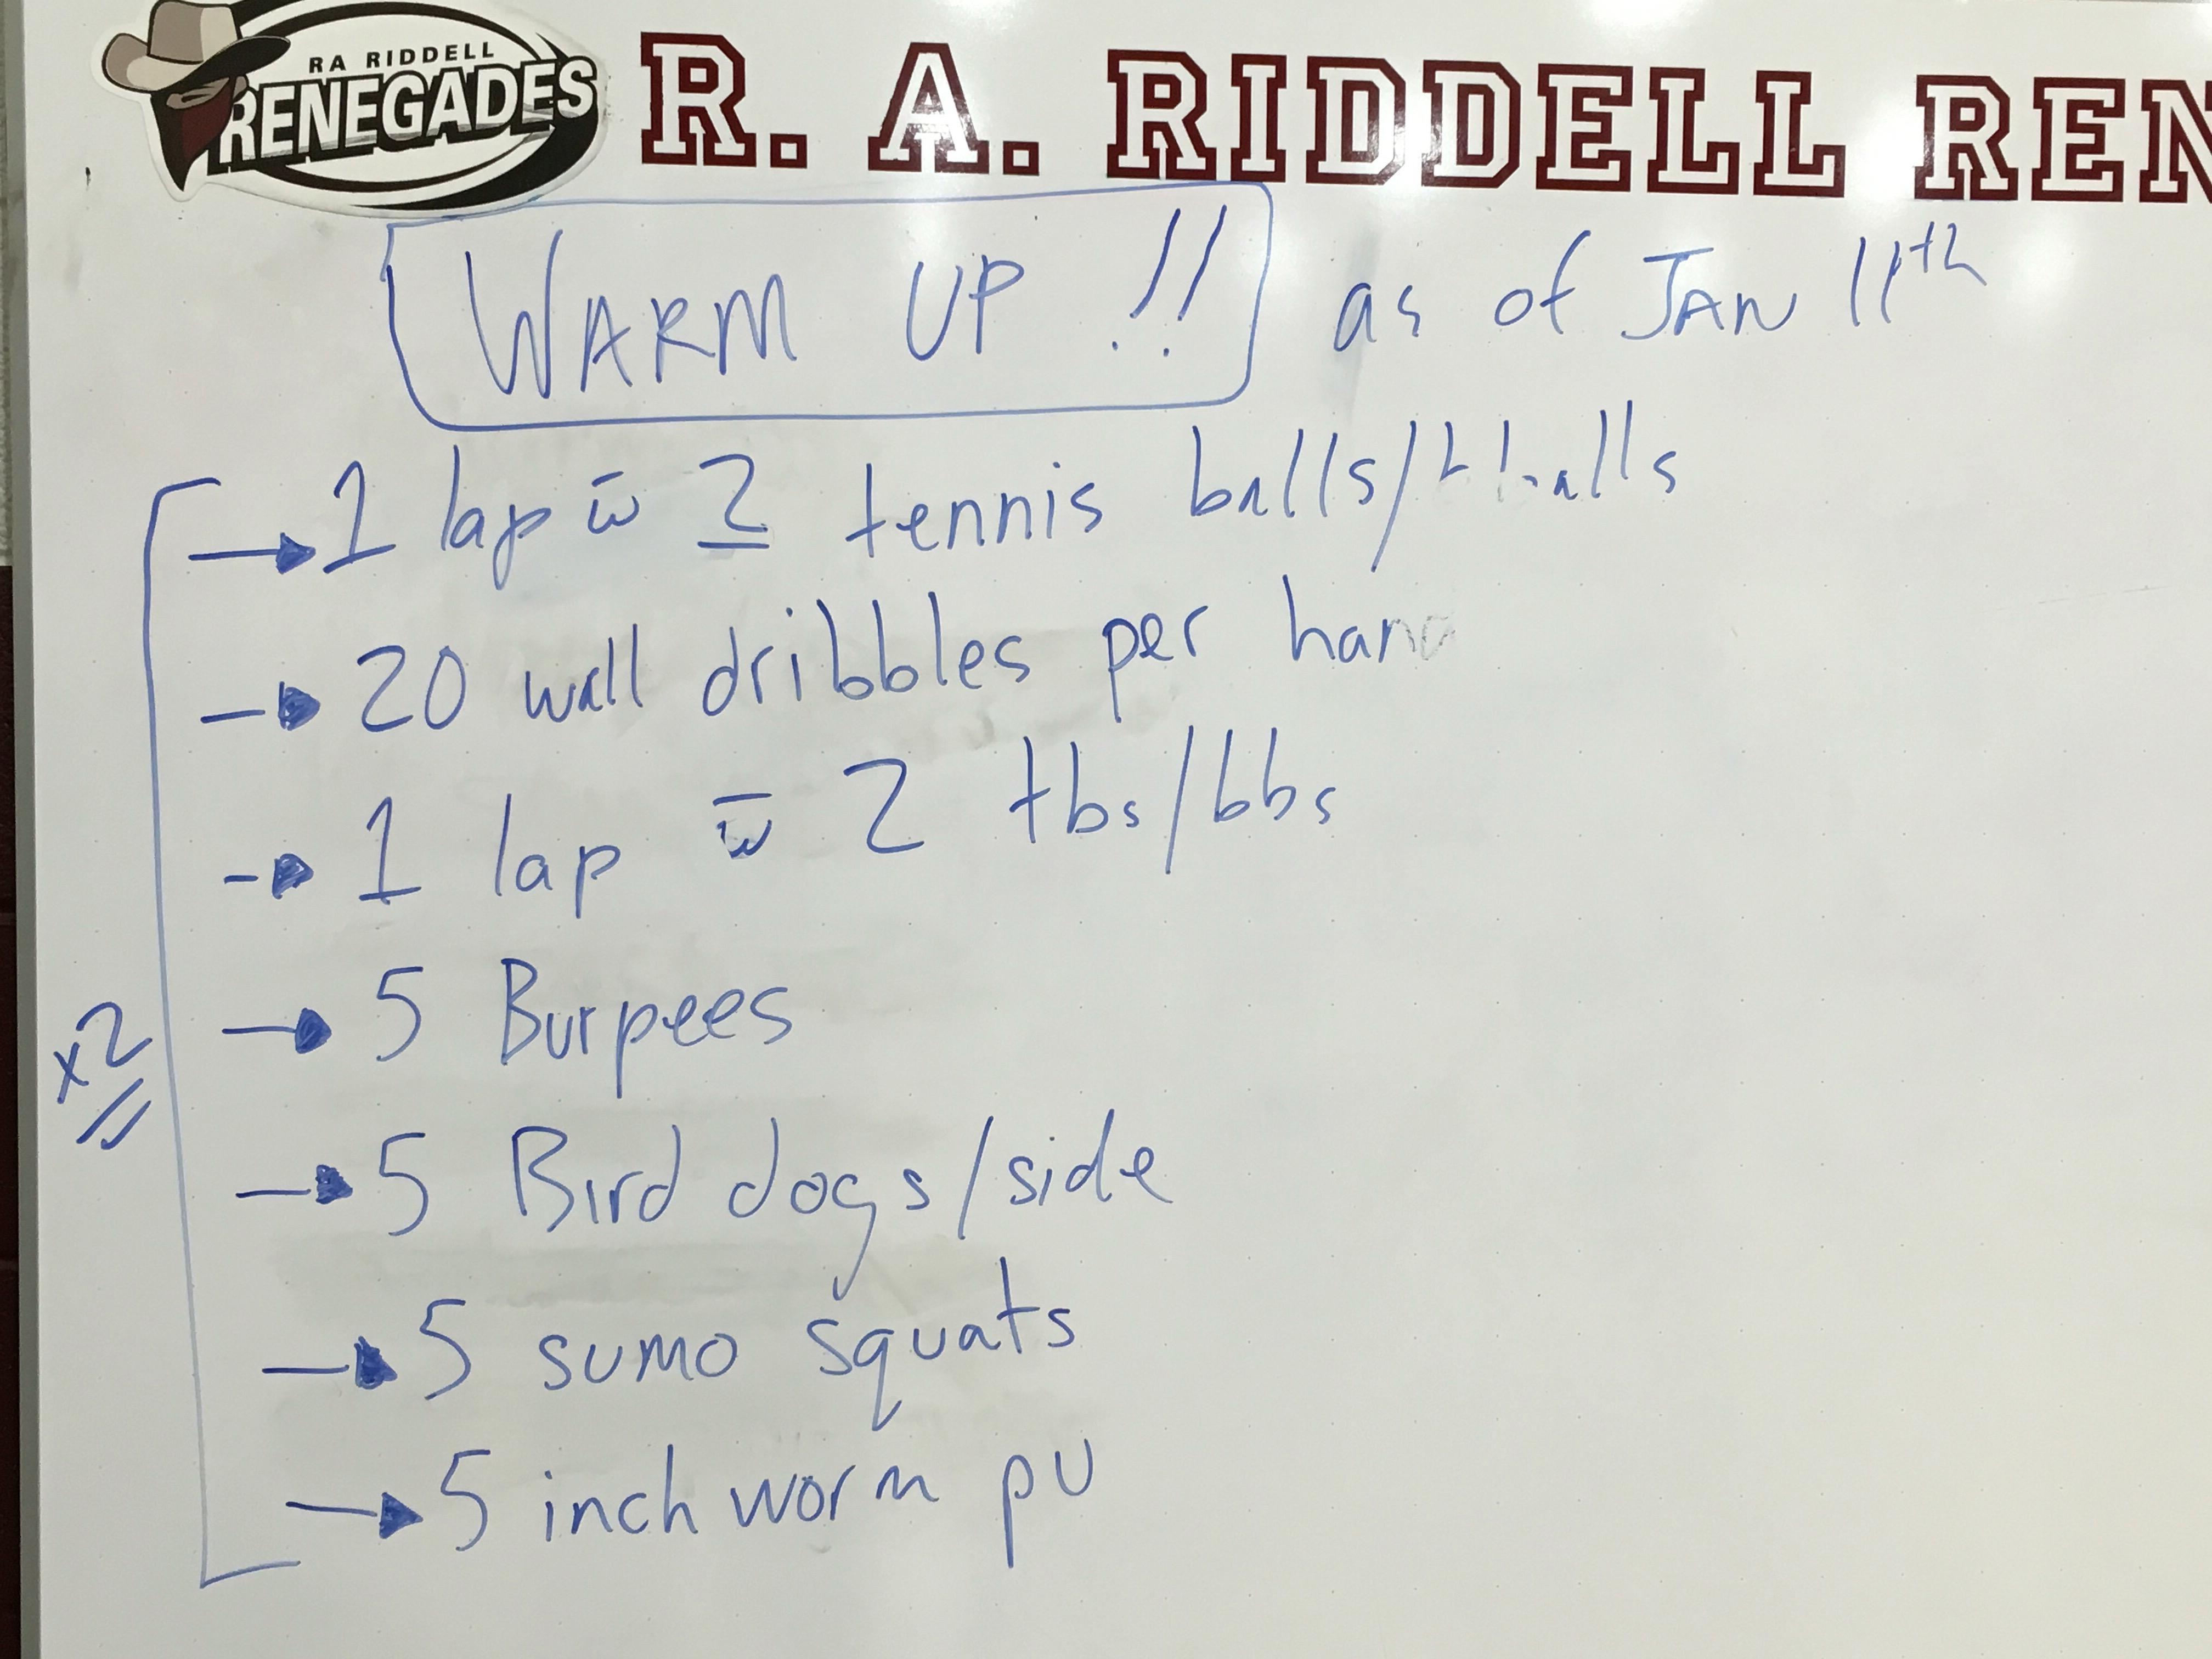 RA RIDDELL
RENEGADES
R. A. RIDDELL REN
WARM UP !! as of JAN 11th
→ 1 lap w̄ 2 tennis balls/
→ 20 wall dribbles per hand
→ 1 lap w̄ 2 tbs/bbs
→ 5 Burpees
x2
→ 5 Bird dogs/side
→ 5 sumo squats
→ 5 inch worm pU